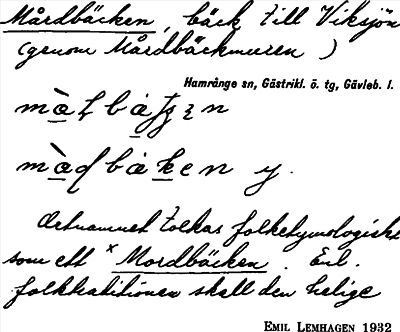 Mårdbäcken, bäck till Viksjön
(genom Mårdbäckmuren)
Hamrånge sn, Gästrikl. ö. tg, Gävleb. l.
y.
Ortnamnet tolkas folketymologiskt
som ett ˣMordbäcken. Enl.
folktraditionen skall den helige
EMIL LEMHAGEN 1932